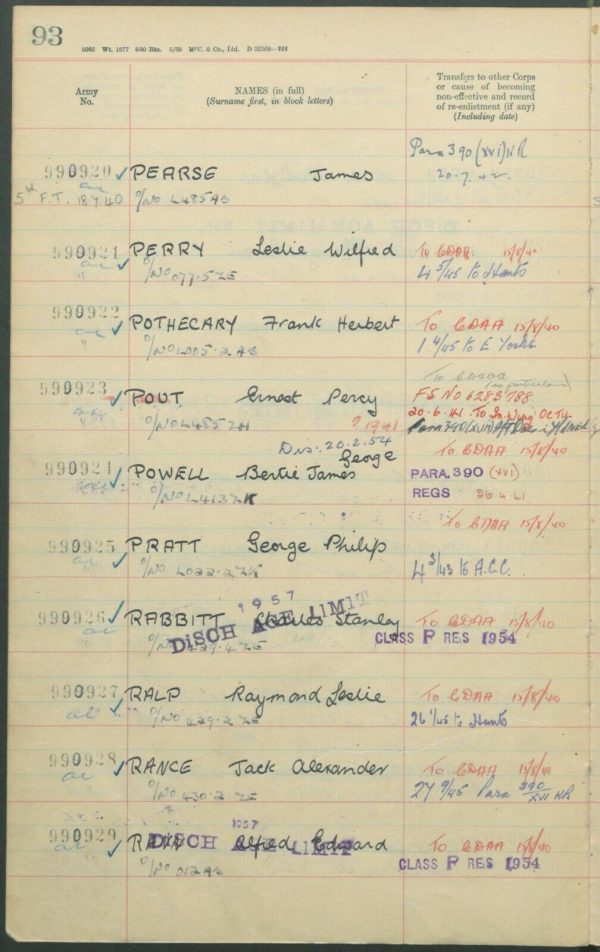 93
5062 Wt. 1677 600 Bks. 5/39 McC. & Co., Ltd. D 32509—191
Army
No.
NAMES (in full)
(Surname first, in block letters)
Transfers to other Corps
or cause of becoming
non-effective and record
of re-enlistment (if any)
(Including date)
Para 390 (XVI) KR
20.7.42
990920 PEARSE James
F.T. O/No L485AB
990921 PERRY Leslie Wilfred To GDAA 15/8/40
O/No 077.5ZE 4 5/45 to Hants
990922
POTHECARY Frank Herbert To GDAA 15/8/40
O/No 1 4/45 to E Yorks
990923
FS No 6283788
POUT Ernest Percy
O/No L485ZH ? 1941 20-6-41 To
Dis: 20.2.54
George To GDAA 15/8/40
990924 POWELL Bertie James PARA. 390 (XVI)
O/No L413ZK REGS 26 4 41
To GDAA 15/8/40
990925 PRATT George Philip
O/No L022.2ZK 4 3/43 to A.C.C.
1957
990926 RABBITT Charles Stanley To GDAA 15/8/40
DISCH AGE LIMIT CLASS P RES 1954
O/No
990927 RALP Raymond Leslie To GDAA 15/8/40
O/No 26 1/45 to Hants
990928 RANCE Jack Alexander To GDAA 15/8/40
O/No 430.2ZE 27 9/45 Para 390/XVI KR
1957
990929 DISCH AGE LIMIT
Alfred Edward To GDAA 15/8/40
O/No 012AB CLASS P RES 1954